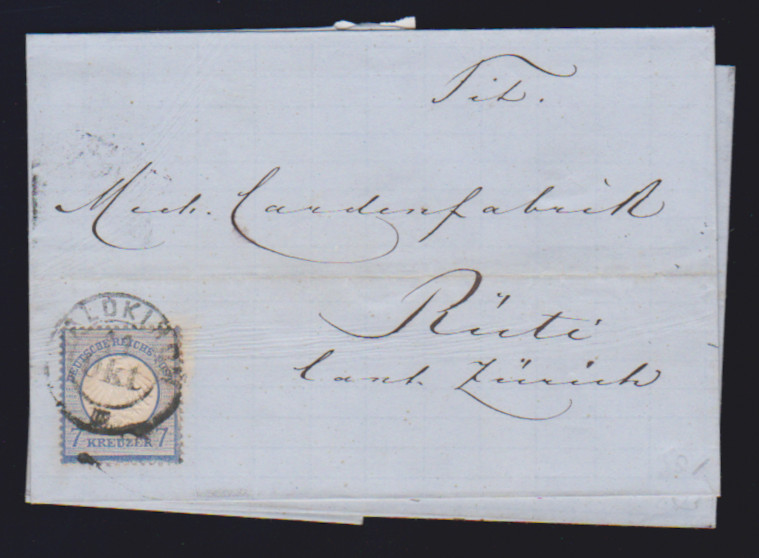 Tit.
Mech. Cardenfabrik
Rüti
Cant. Zürich
LDKI
DEUTSCHE REICHS-POST
Okt
III
7 KREUZER 7